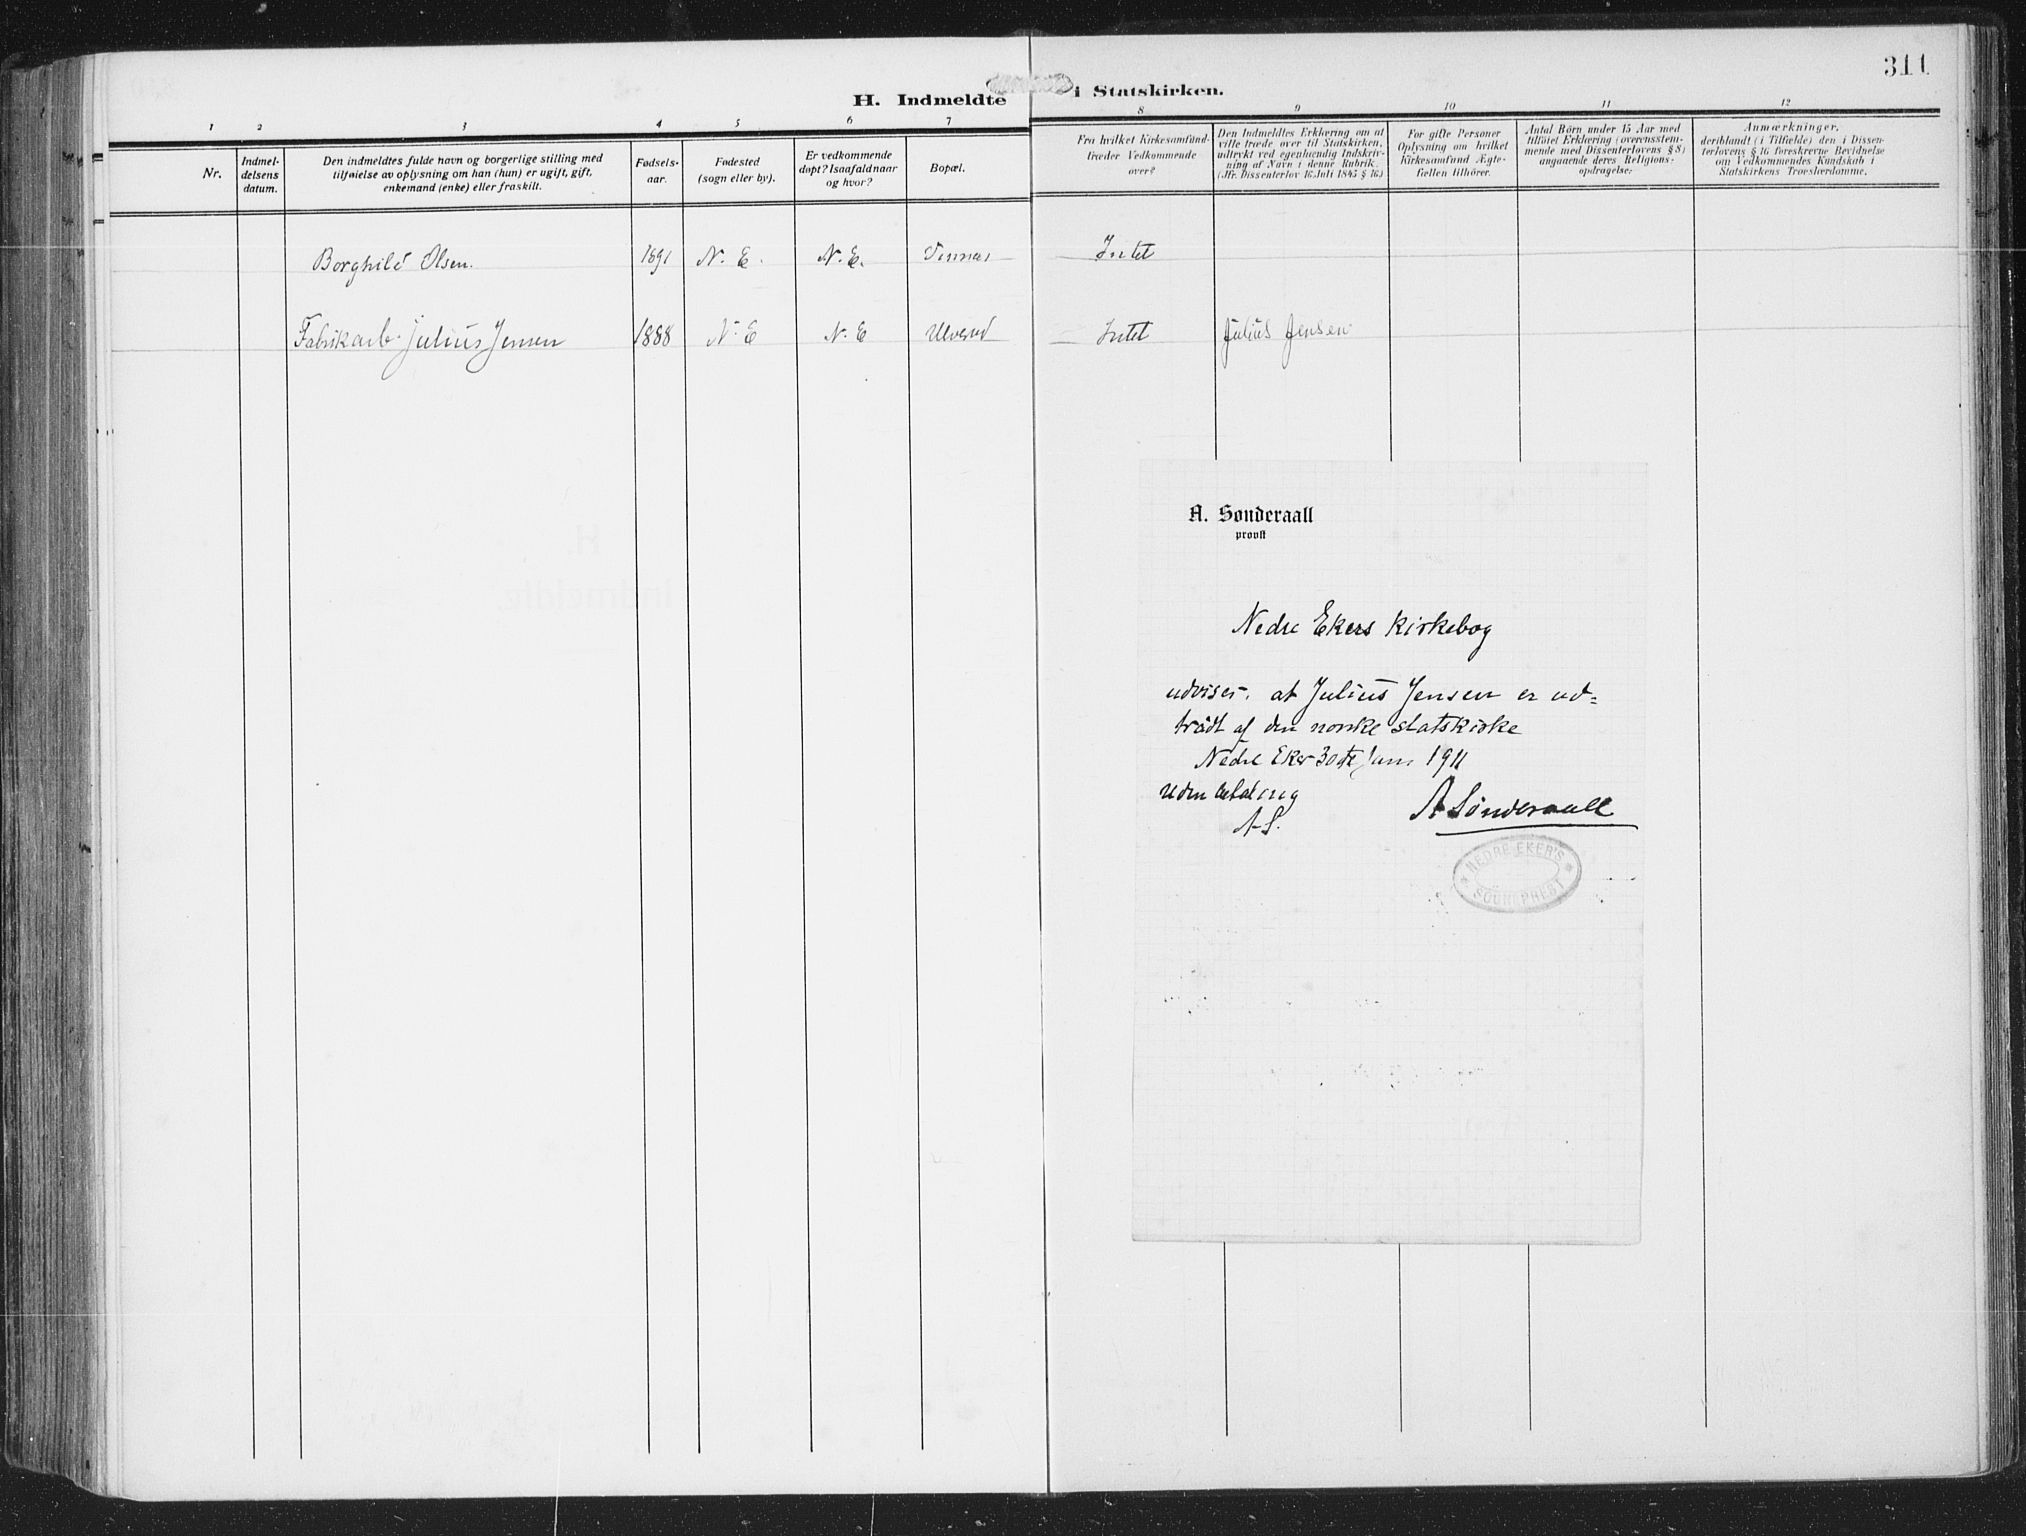 311
H. Indmeldte i Statskirken.
1 2 3 4 5 6 7 8 9 10 11 12
Nr.
Indmel-
delsens
datum.
Den indmeldtes fulde navn og borgerlige stilling med
tilføielse av oplysning om han (hun) er ugift, gift,
enkemand (enke) eller fraskilt.
Fødsels-
aar.
Fødested
(sogn eller by).
Er vedkommende
døpt? Isaafald naar
og hvor?
Bopæl.
Fra hvilket Kirkesamfund-
træder Vedkommende
over?
Den Indmeldtes Erklæring om at
ville træde over til Statskirken,
udtrykt ved egenhændig Indskriv-
ning af Navn i denne Rubrik.
(Jfr. Dissenterlov 16 Juli 1845 § 16.)
For gifte Personer
Oplysning om hvilket
Kirkesamfund Ægte-
fællen tilhører.
Antal Börn under 15 Aar med
tilføiet Erklæring (overensstem-
mende med Dissenterlovens § 8)
angaaende deres Religions-
opdragelse:
Anmærkninger,
deriblandt (i Tilfælde) den i Dissen-
terlovens § 16 foreskrevne Bevidnelse
om Vedkommendes Kundskab i
Statskirkens Troeslærdomme.
Borghild Olsen. 1891 N. E. N. E. Intet
Fabrikarb. Julius Jensen 1888 N. E N. E Ulverud Intet Julius Jensen
A. Sønderaall
provst
Nedre Ekers Kirkebog
udviser, at Julius Jensen er ud=
trådt af den norske statskirke
Nedre Eker 30te Juni 1911
Uden betaling
A. S.
A Sønderaall
NEDRE EKER'S
SOGNEPREST